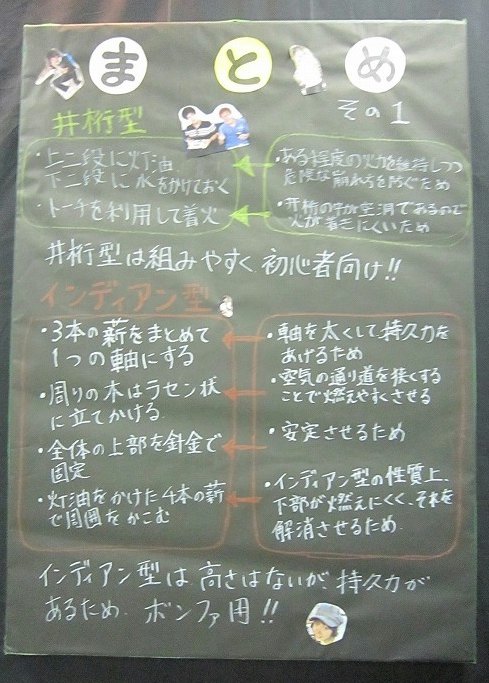 まとめ
その1
井桁型
・上二段に灯油
下二段に水をかけておく
・トーチを利用して着火
・ある程度の火力を維持しつつ
危険な崩れ方を防ぐため
・井桁の中が空洞であるので
火が着きにくいため
井桁型は組みやすく初心者向け!!
インディアン型
・3本の薪をまとめて
1つの軸にする
・周りの木はラセン状
に立てかける
・全体の上部を針金で
固定
・灯油をかけた4本の薪
で周囲をかこむ
・軸を太くして持久力を
あげるため
・空気の通り道を狭くする
ことで燃えやすくさせる
・安定させるため
・インディアン型の性質上、
下部が燃えにくく、それを
解消させるため.
インディアン型は高さはないが、持久力が
あるため、ボンファ用!!